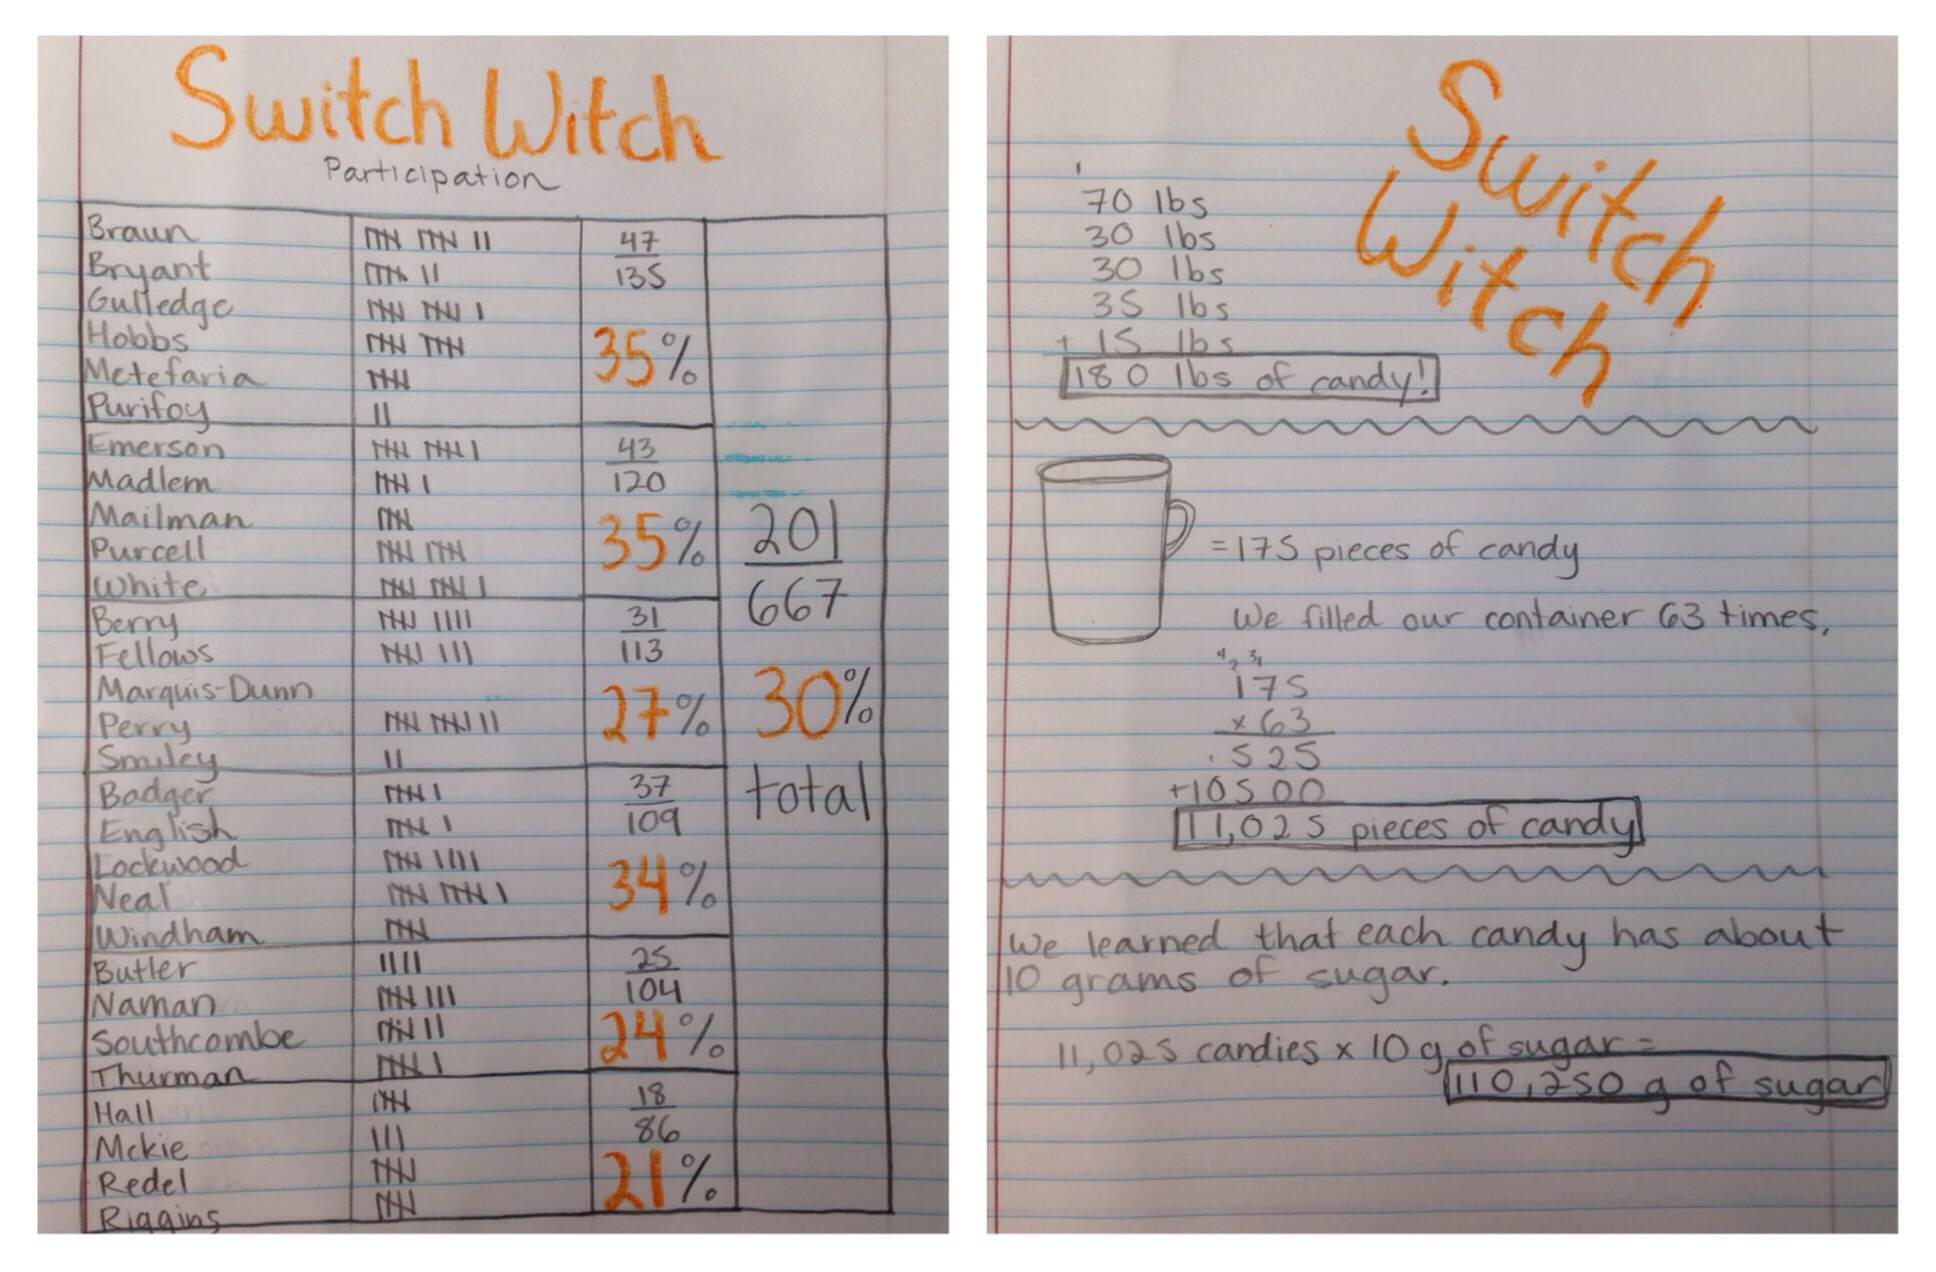 Switch Witch
Participation
Braun
Bryant
Gulledge
Hobbs
Metefaria
Purifoy
47
135
35%
Emerson
Madlem
Mailman
Purcell
White
43
120
35%
Berry
Fellows
Marquis-Dunn
Perry
Smiley
31
113
27%
Badger
English
Lockwood
Neal
Windham
37
109
34%
Butler
Naman
Southcombe
Thurman
25
104
24%
Hall
Mckie
Redel
Riggins
18
86
21%
201
667
30%
total
Switch
Witch
1
70 lbs
30 lbs
30 lbs
35 lbs
+ 15 lbs
180 lbs of candy!
= 175 pieces of candy
We filled our container 63 times.
4 2 3 1
175
x 63
525
+10500
11,025 pieces of candy
We learned that each candy has about
10 grams of sugar.
11,025 candies x 10 g of sugar =
110,250 g of sugar